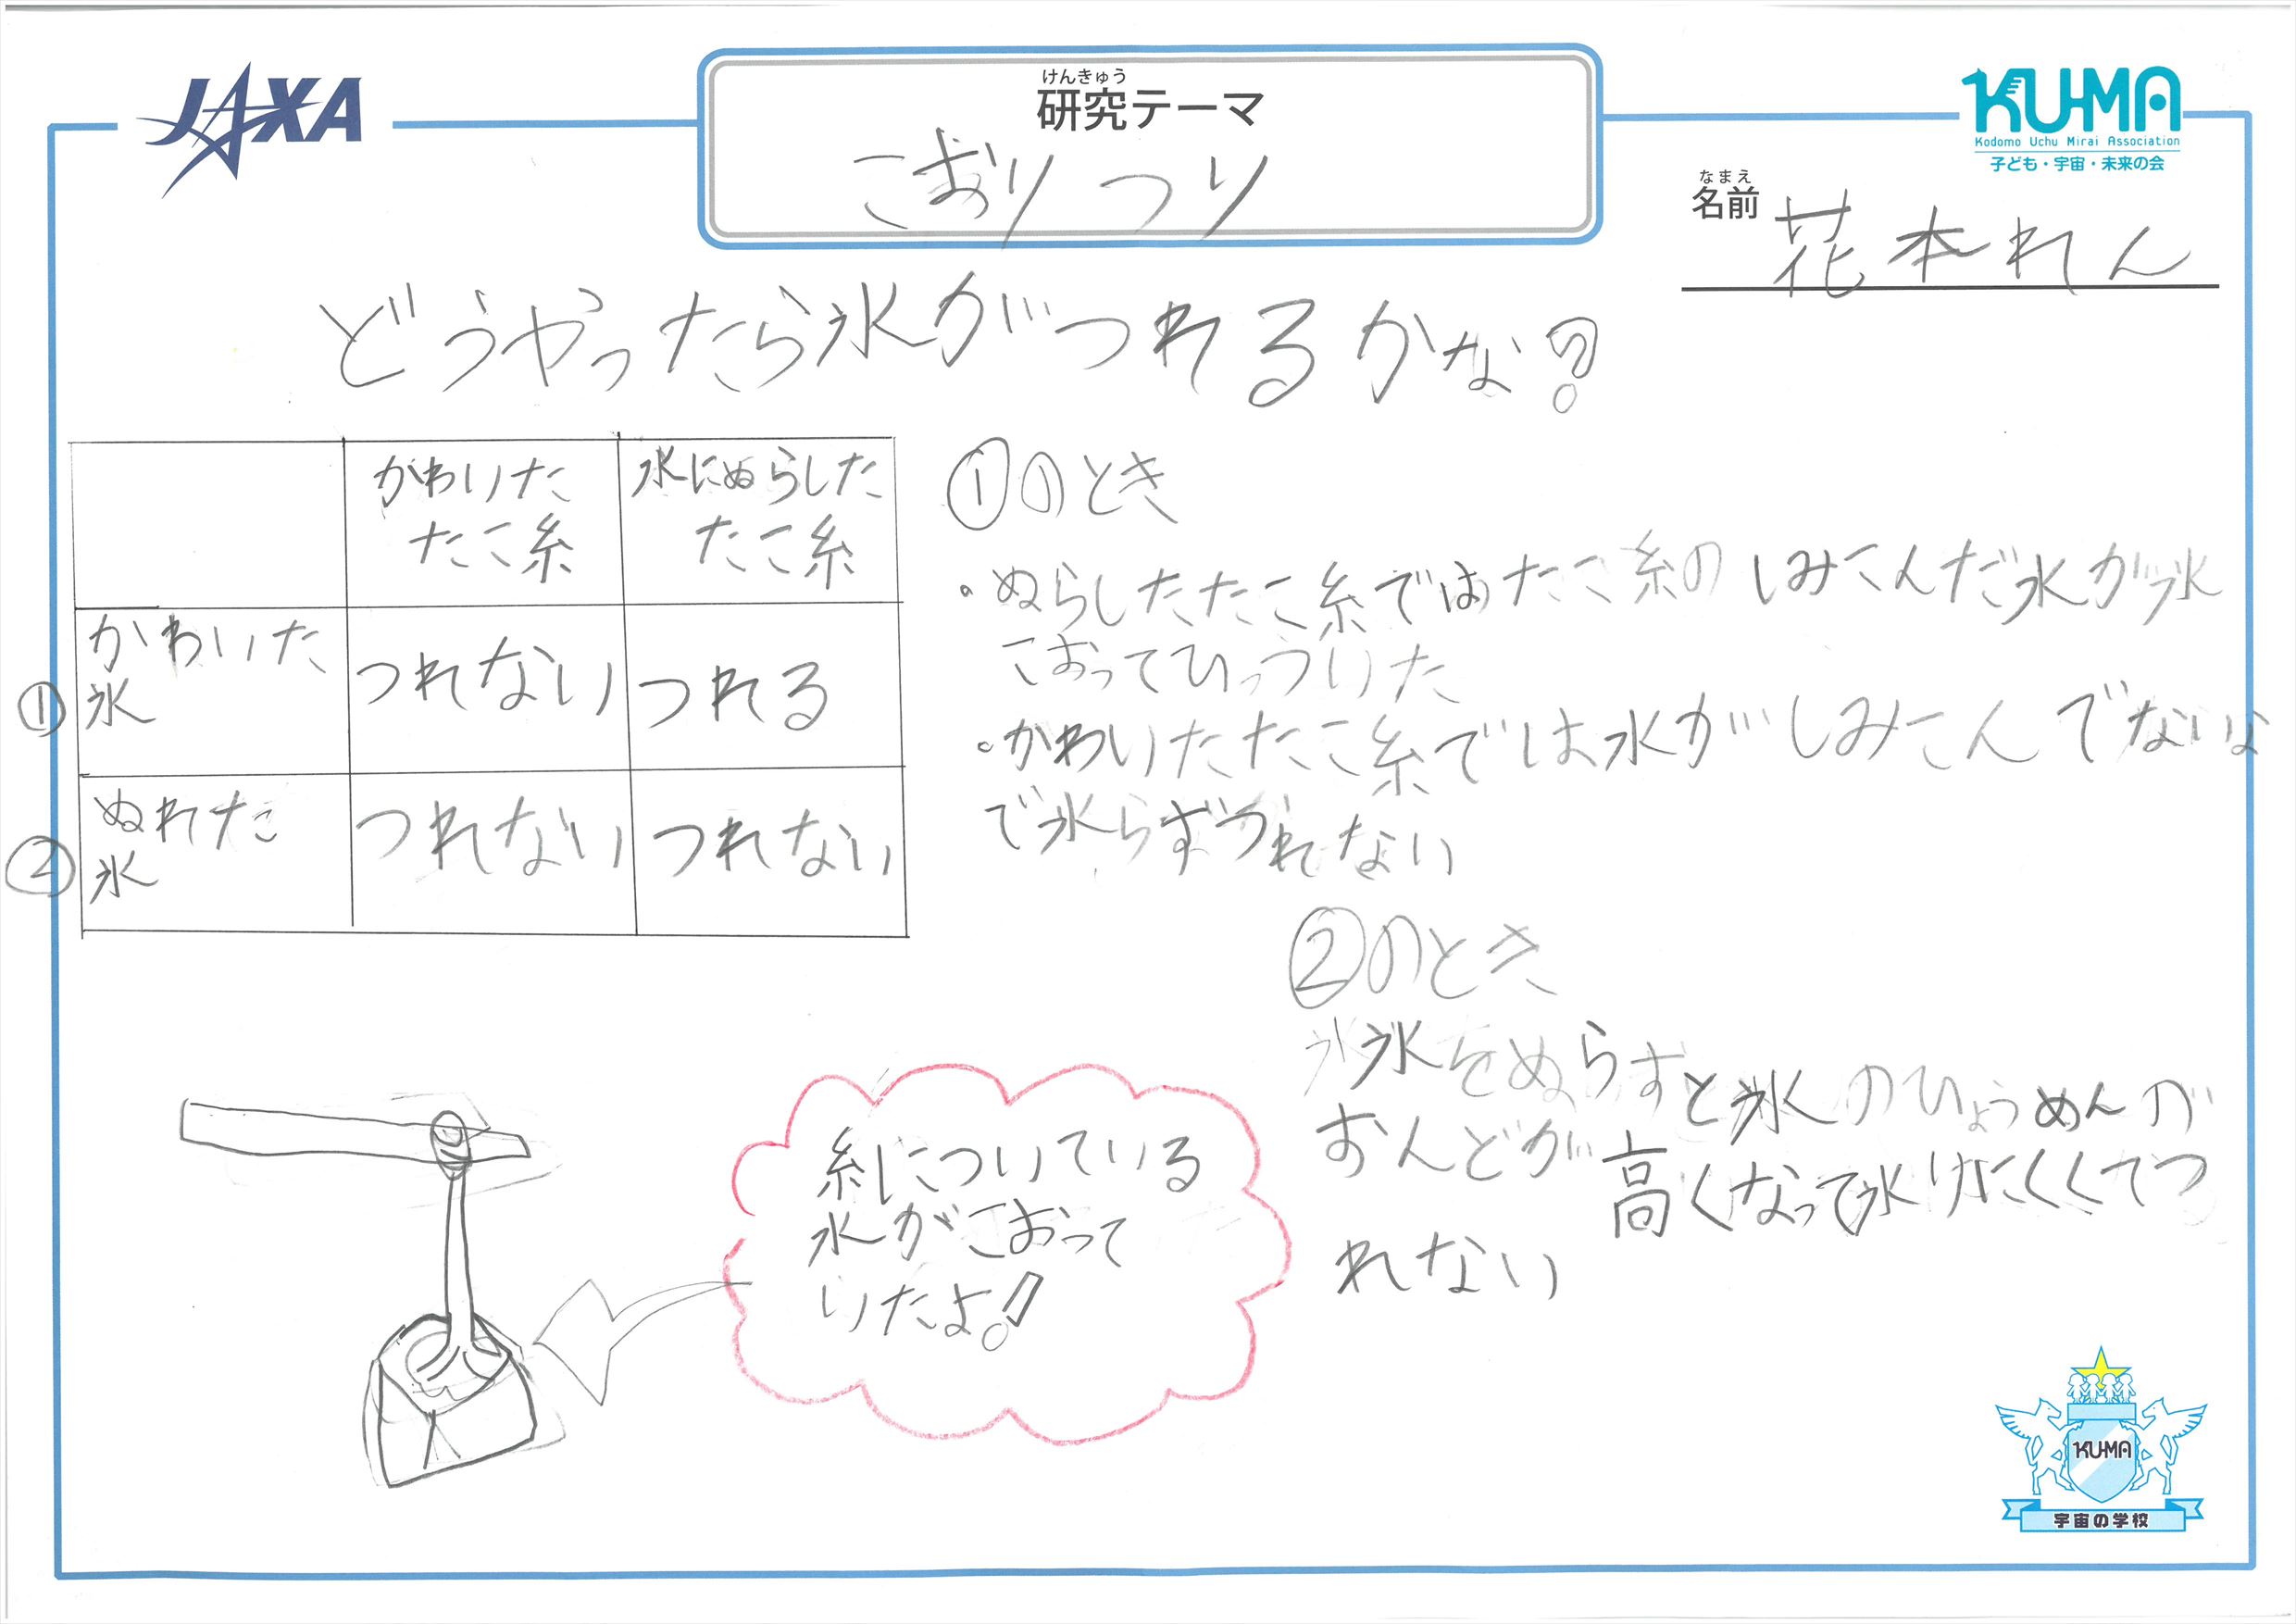 JAXA
けんきゅう
研究テーマ
こおりつり
KUMA
Kodomo Uchu Mirai Association
子ども・宇宙・未来の会
なまえ
名前
花本れん
どうやったら氷がつれるかな?
かわいた
たこ糸
水にぬらした
たこ糸
① かわいた
氷
つれない
つれる
② ぬれた
氷
つれない
つれない
①のとき
・ぬらしたたこ糸ではたこ糸のしみこんだ水が氷
こおってひっついた
・かわいたたこ糸では水がしみこんでないな
で氷らずつれない
②のとき
氷氷をぬらすと氷のひょうめんが
おんどが高くなって氷けにくくてつ
れない
糸についている
水がこおって
いたよ!
KUMA
宇宙の学校